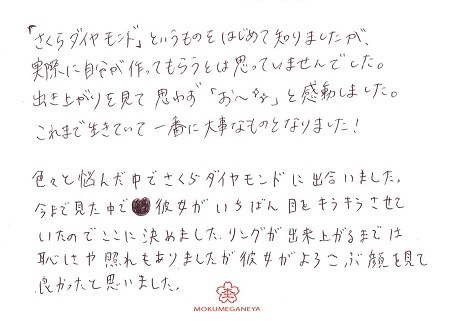 「さくらダイヤモンド」というものをはじめて知りましたが、
実際に自分が作ってもらうとは思っていませんでした。
出き上がりを見て 思わず「お～☆☆」と感動しました。
これまで生きていて一番に大事なものとなりました！
色々と悩んだ中でさくらダイヤモンドに出合いました。
今まで見た中で 彼女がいちばん目をキラキラさせて
いたのでここに決めました。リングが出来上がるまでは
恥じや照れもありましたが彼女がよろこぶ顔を見て
良かったと思いました。
MOKUMEGANEYA